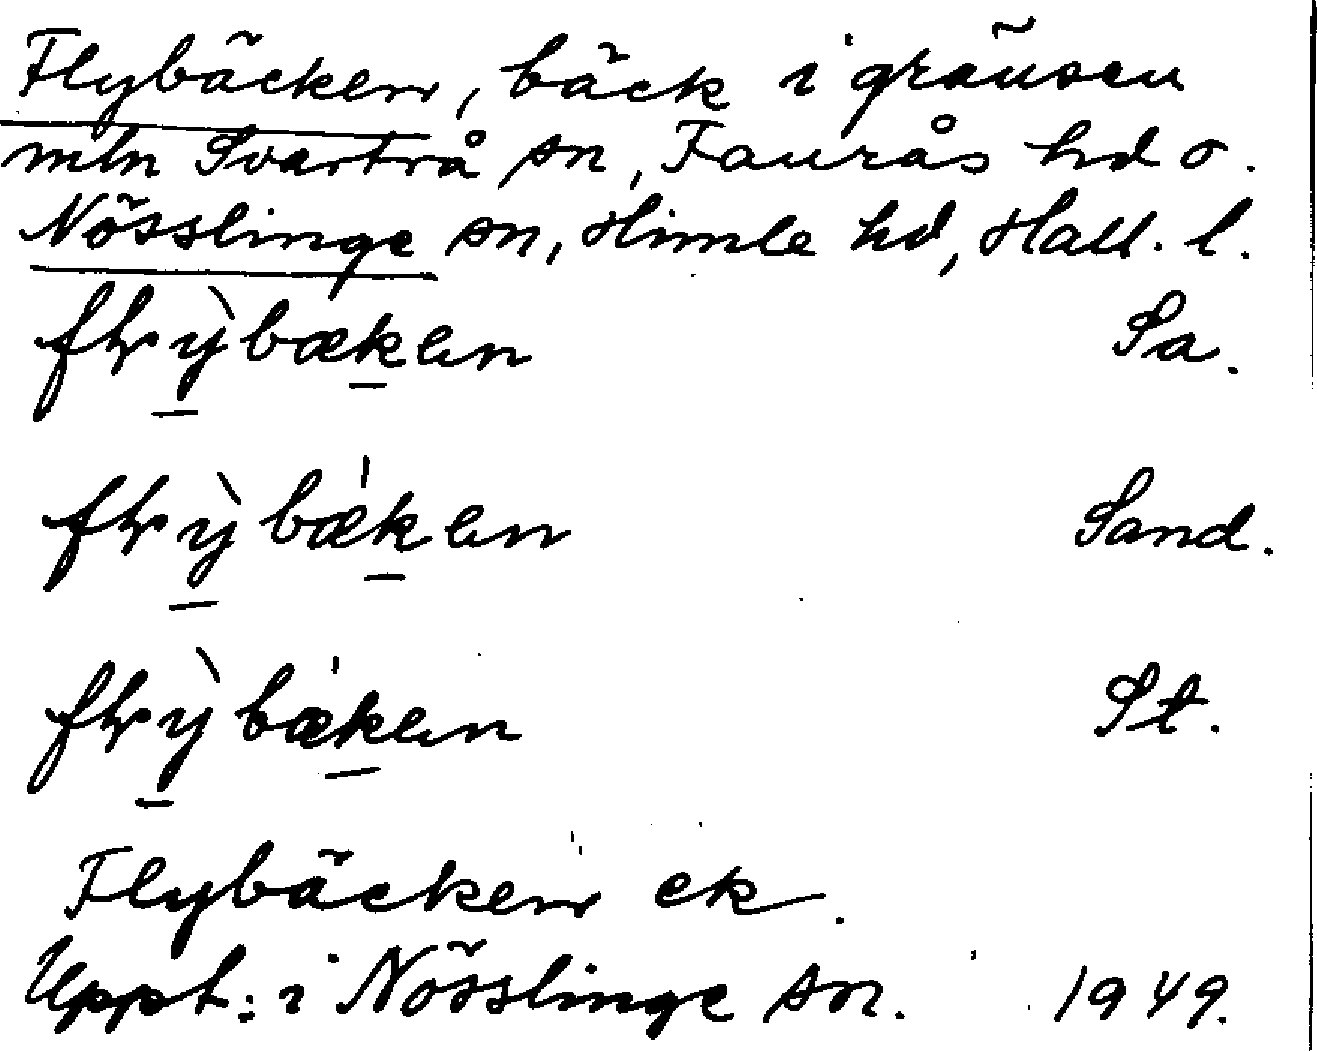 Flybäcken, bäck i gränsen
mln Svartrå sn, Faurås hd o.
Nösslinge sn, Himle hd, Hall. l.
flỳbækən Sa.
flỳbækən Sand.
flỳbækən St.
Flybäcken ek.
Uppt.: i Nösslinge sn. 1949.